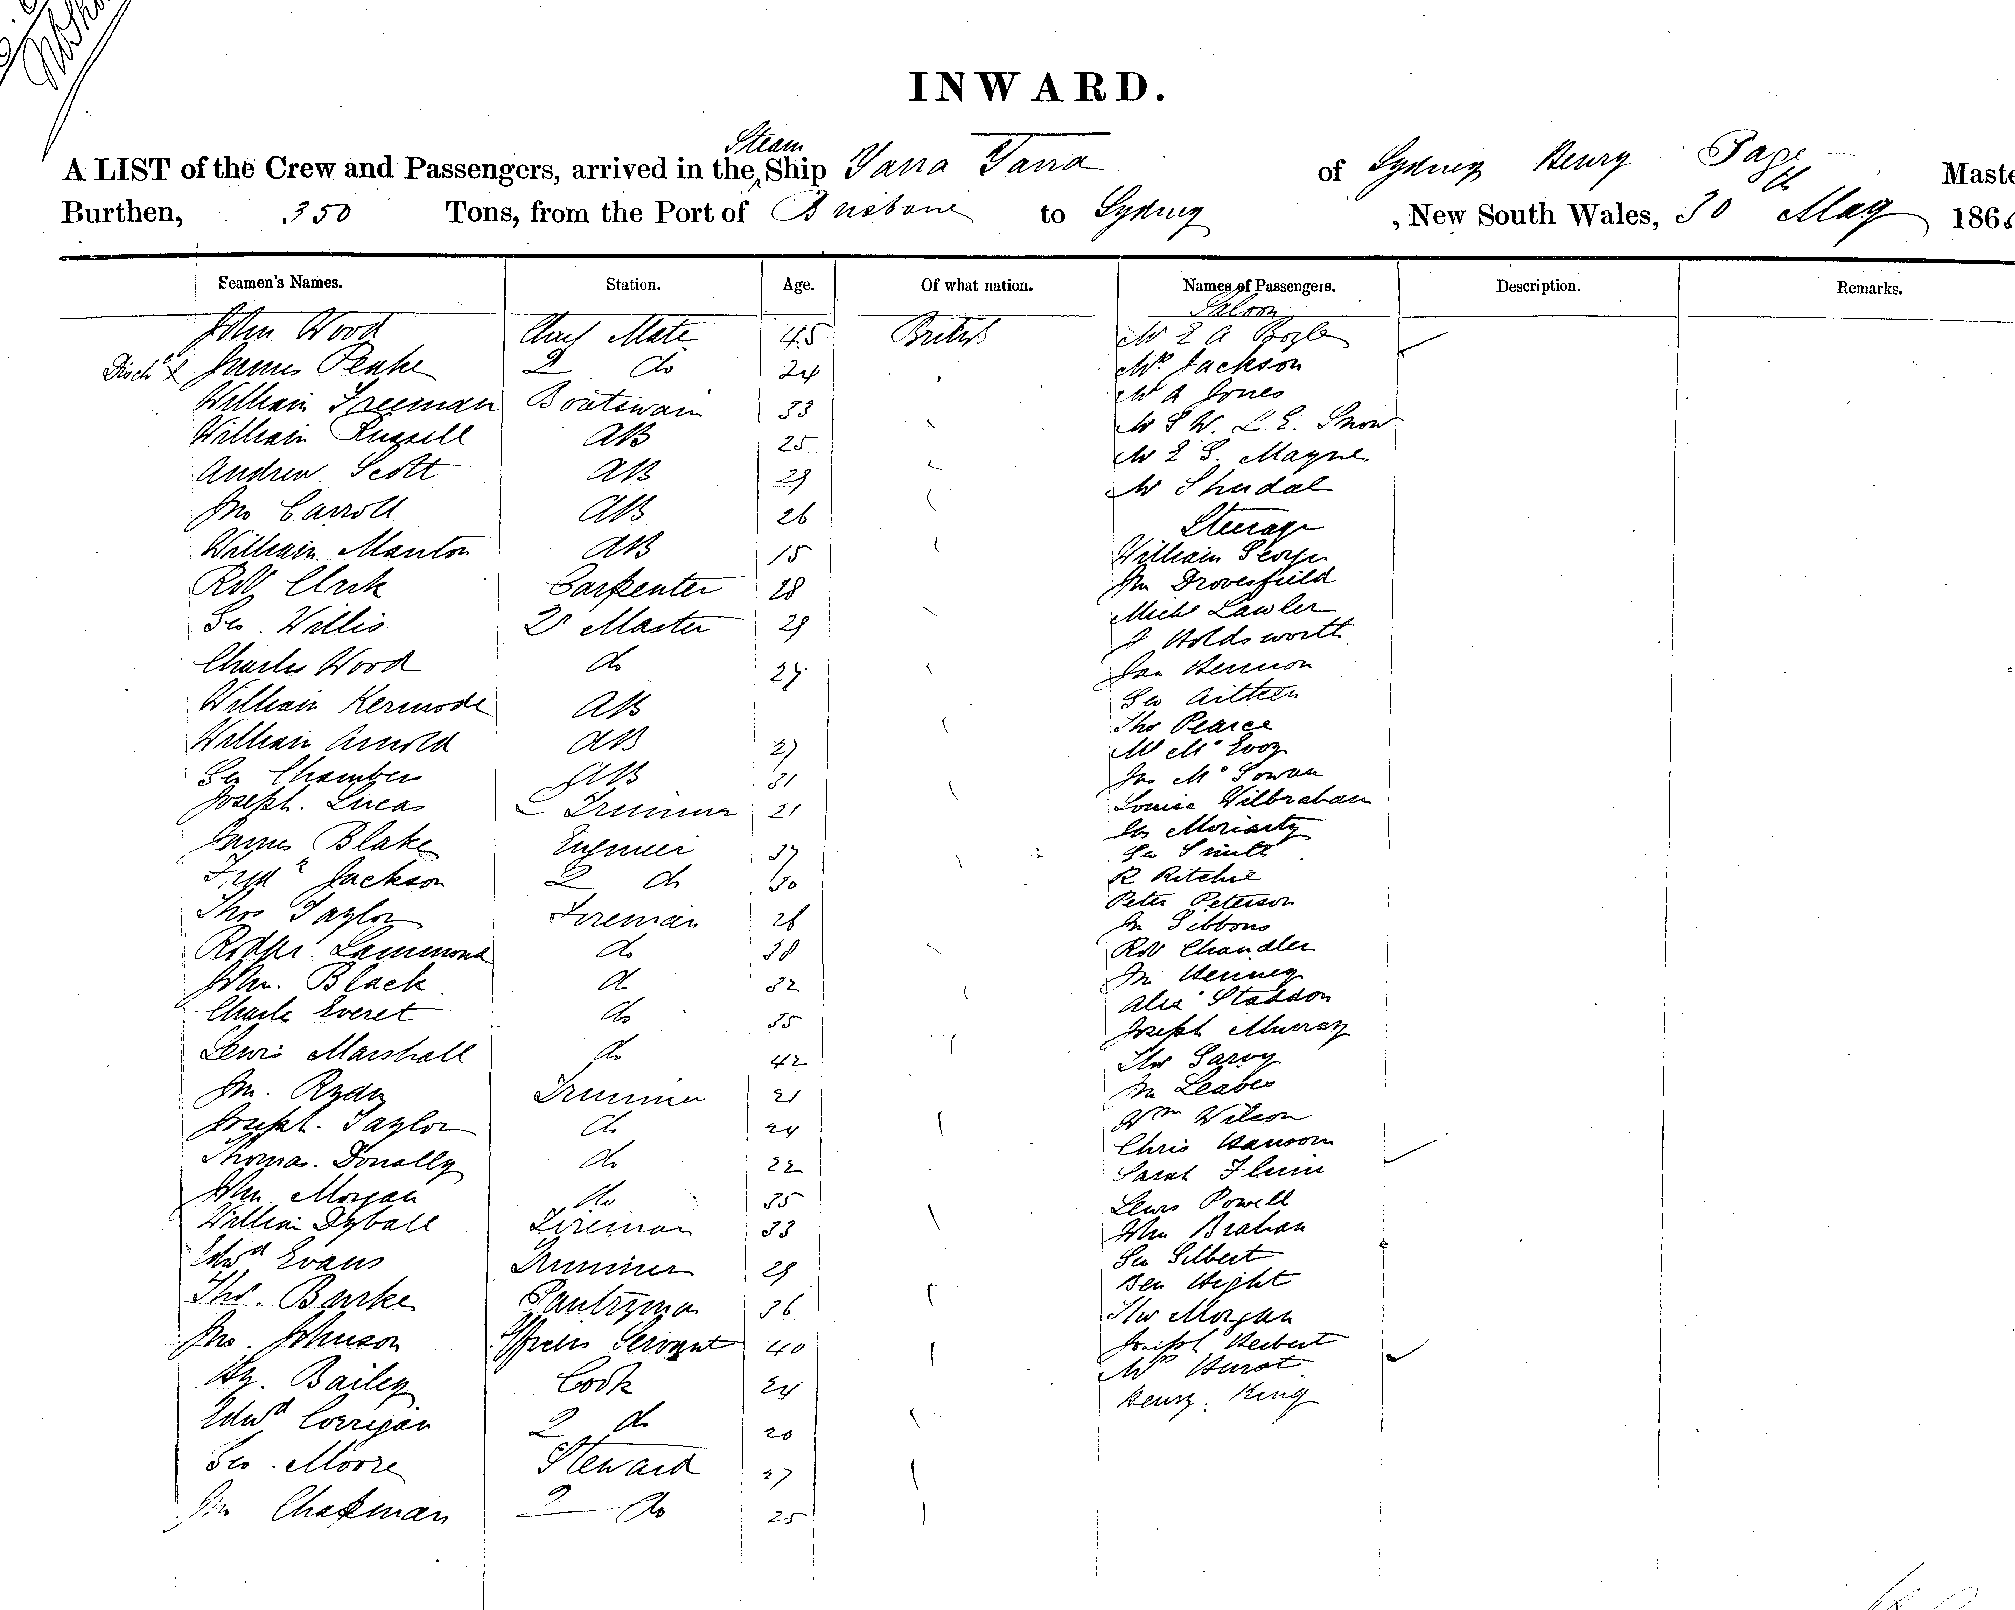 INWARD.
Steam
A LIST of the Crew and Passengers, arrived in the Ship Yarra Yarra of Sydney Henry Page Maste
Burthen, 350 Tons, from the Port of Brisbane to Sydney , New South Wales, 30th May 186
Seamen's Names. Station. Age. Of what nation. Names of Passengers. Description. Remarks.
Saloon
John Wood Chief Mate 45 British Mr E A Boyle
Dischd James Peake 2 do 24 Mr Jackson
William Freeman Boatswain 33 Mr A Jones
William Russell AB 25 Mr S W. L. E. Snow
Andrew Scott AB 29 Mr E S. Mayne
Jno Carroll AB 26 Mr Shudal
Steerage
William Manton AB 15 William George
Robt Clark Carpenter 28 Jn Drovesfield
Geo. Willis 2r Master 29 Michl Lawler
J Holdsworth
Charles Wood do 27 Jas Hennon
William Kermode AB Geo Aitken
Thos Pearce
William Arnold AB 27 Mr McEvoy
Geo Chambers AB 31 Jas McGowan
Joseph. Lucas Trimmer 21 Louisa Wilbraham
Moriarty
James Blake Engineer 37 Geo Smith
Fredk Jackson 2 do 30 R Ritchie
Peter Peterson
Thos Taylor Fireman 26 Jn Gibbons
Rodger Lammond do 38 Robt Chandler
John. Black do 32 Jn Henney
Charles Everet do 35 Alex Staddon
Joseph Murray
Lewis Marshall do 42 Thos Garvy
Jn. Ryder Trimmer 21 Jn Leabes
Joseph. Taylor do 24 Wm Wilson
Chris Hansom
Thomas. Donally do 22 Sarah Flinn
John Morgan do 35 Lewis Powell
William Dyball Fireman 33 John Brahan
Edwd Evans Trimmer 29 Geo Gilbert
Ben Hight
Thos. Burke Pantryman 36 Thos Morgan
Jno. Johnson Officers Servant 40 Joseph Herbert
Mr Hurst
Hy. Bailey Cook 24 Henry. King
Edwd Corrigan 2 do 20
Geo. Moore Steward 27
Jno Chapman 2 do 25